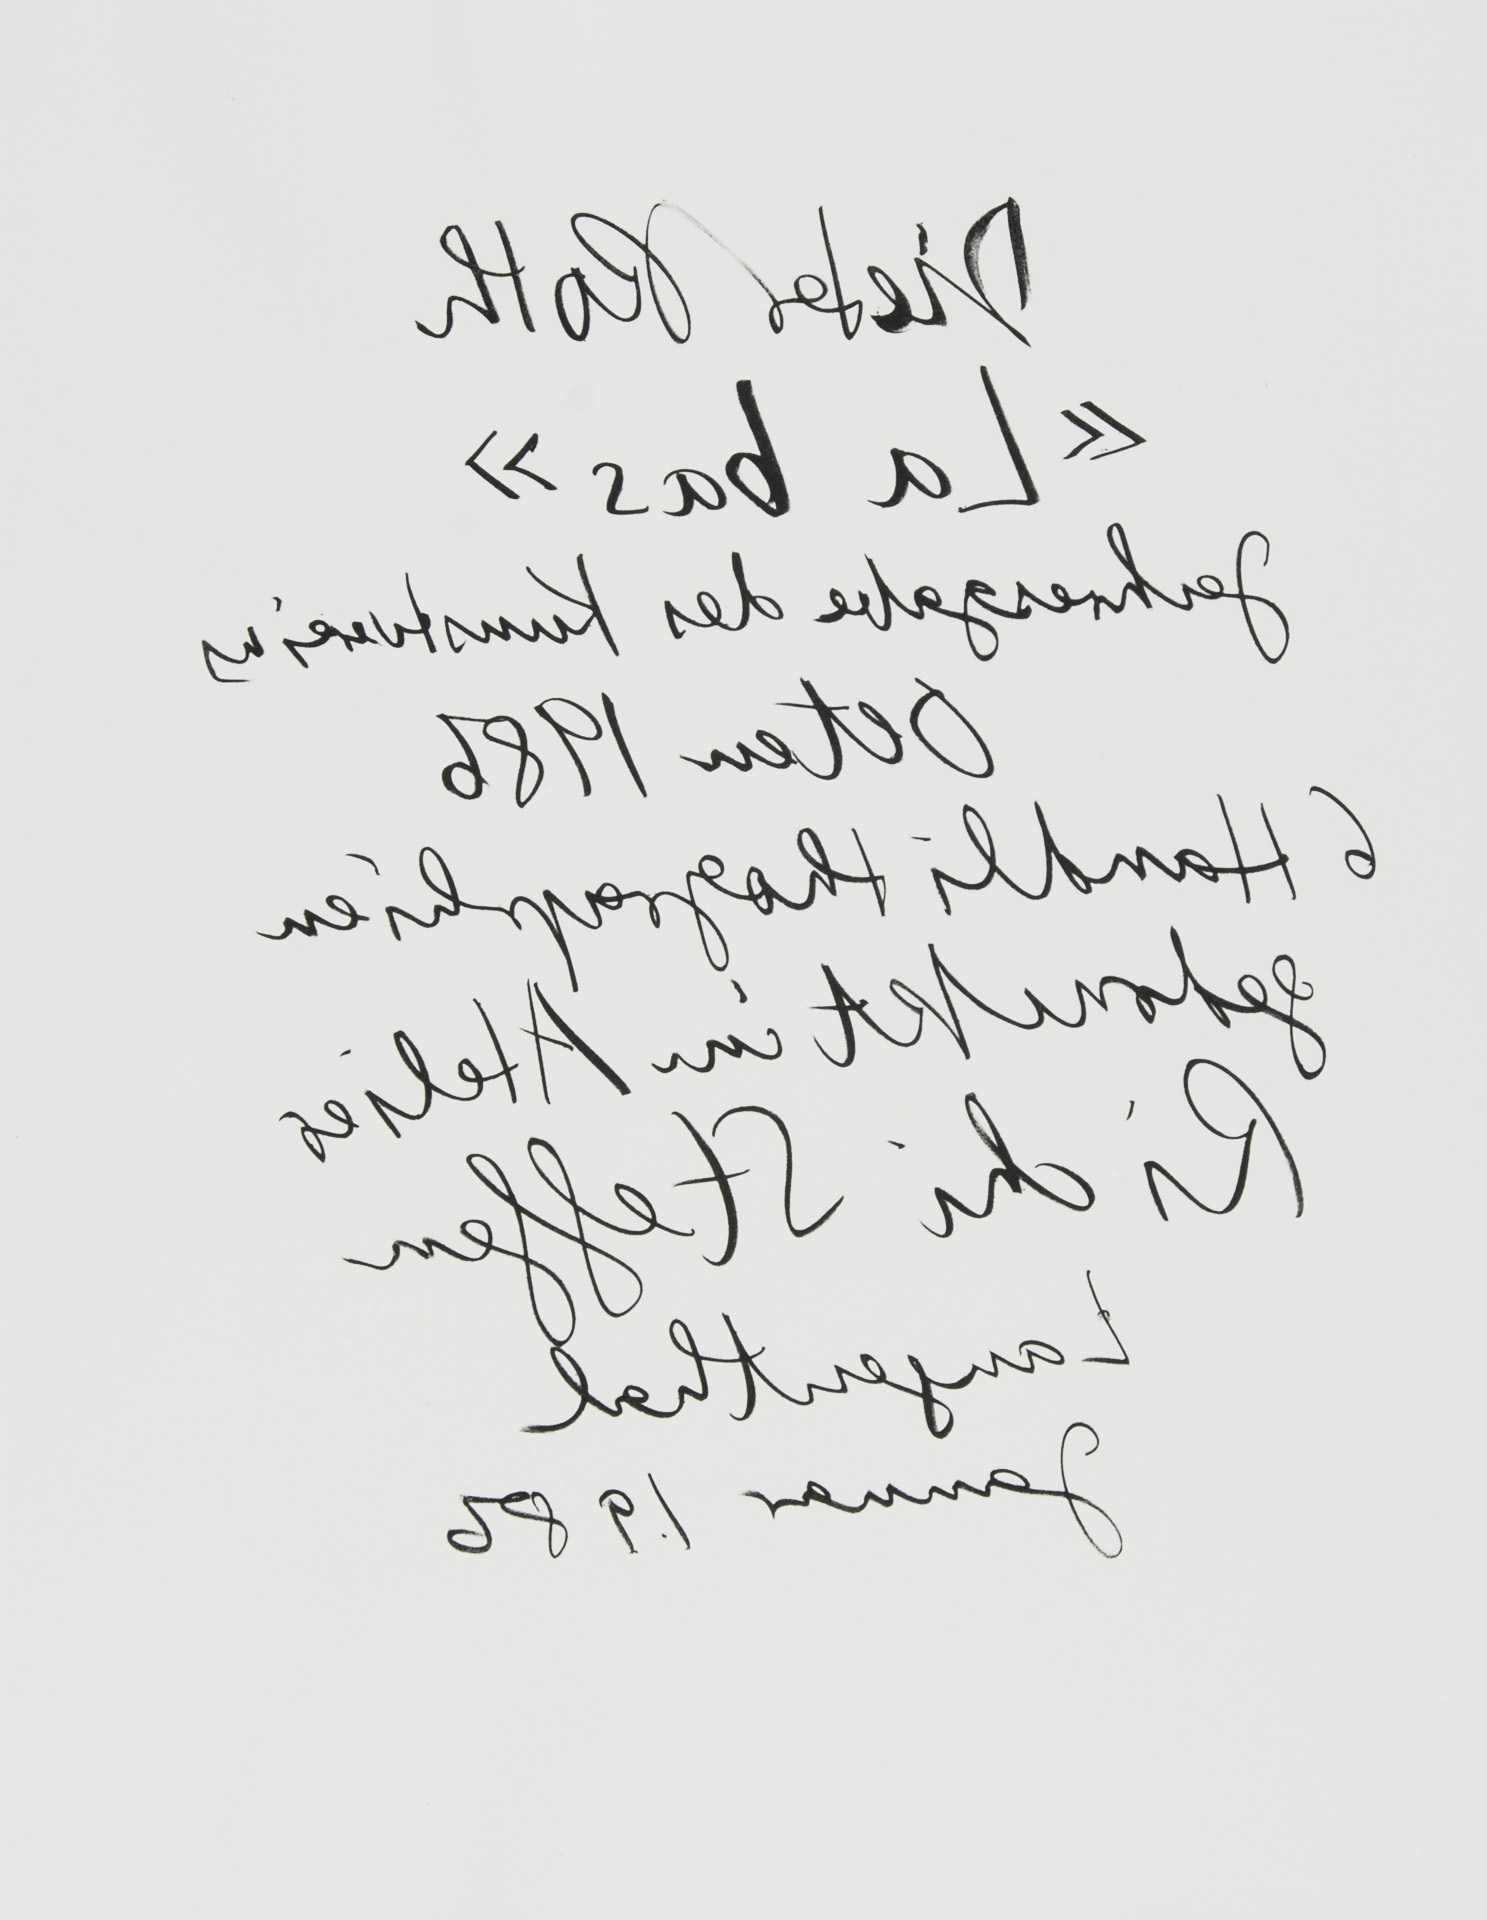 Dieter Roth
« La bas »
Jahresgabe des Kunstvereins
Olten 1985
6 Handlithographien
gedruckt im Atelier
Richi Steffen
Langenthal
Januar 1985